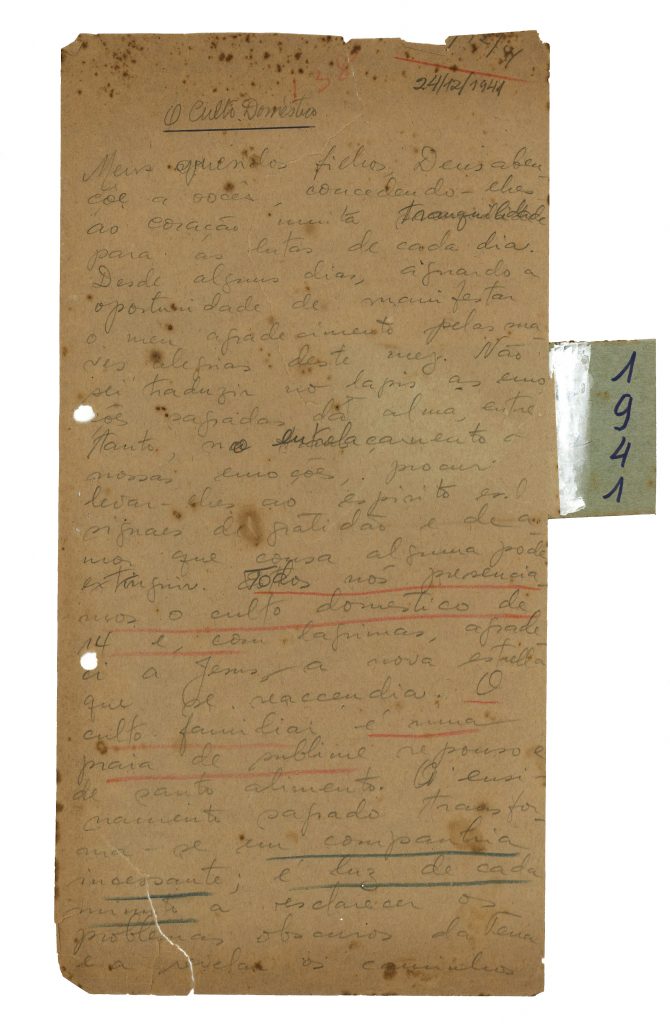 138
24/12/1941
O Culto Doméstico
Meus queridos filhos, Deus aben-
çõe a vocês, concedendo-lhes
ao coração muita tranquilidade
para as lutas de cada dia.
Desde alguns dias, aguardo a
oportunidade de manifestar
o meu agradecimento pelas sua
ves alegrias deste mez. Não
sei traduzir no lapis as emo
ções sagradas da alma, entre
tanto, no entrelaçamento d
nossas emoções, procur
levar-lhes ao espirito es
signaes de gratidão e de a
mor que cousa alguma póde
extinguir. Todos nós presencia-
mos o culto doméstico de
14 e, com lagrimas, agrade
ci a Jesus a nova estrella
que se reaccendia. O
culto familiar é uma
praia de sublime repouso e
de santo alimento. O ensi-
namento sagrado transfor
ma-se em companhia
incessante; é luz de cada
minuto a esclarecer os
problemas obscuros da Terra
e a revelar os caminhos
1941